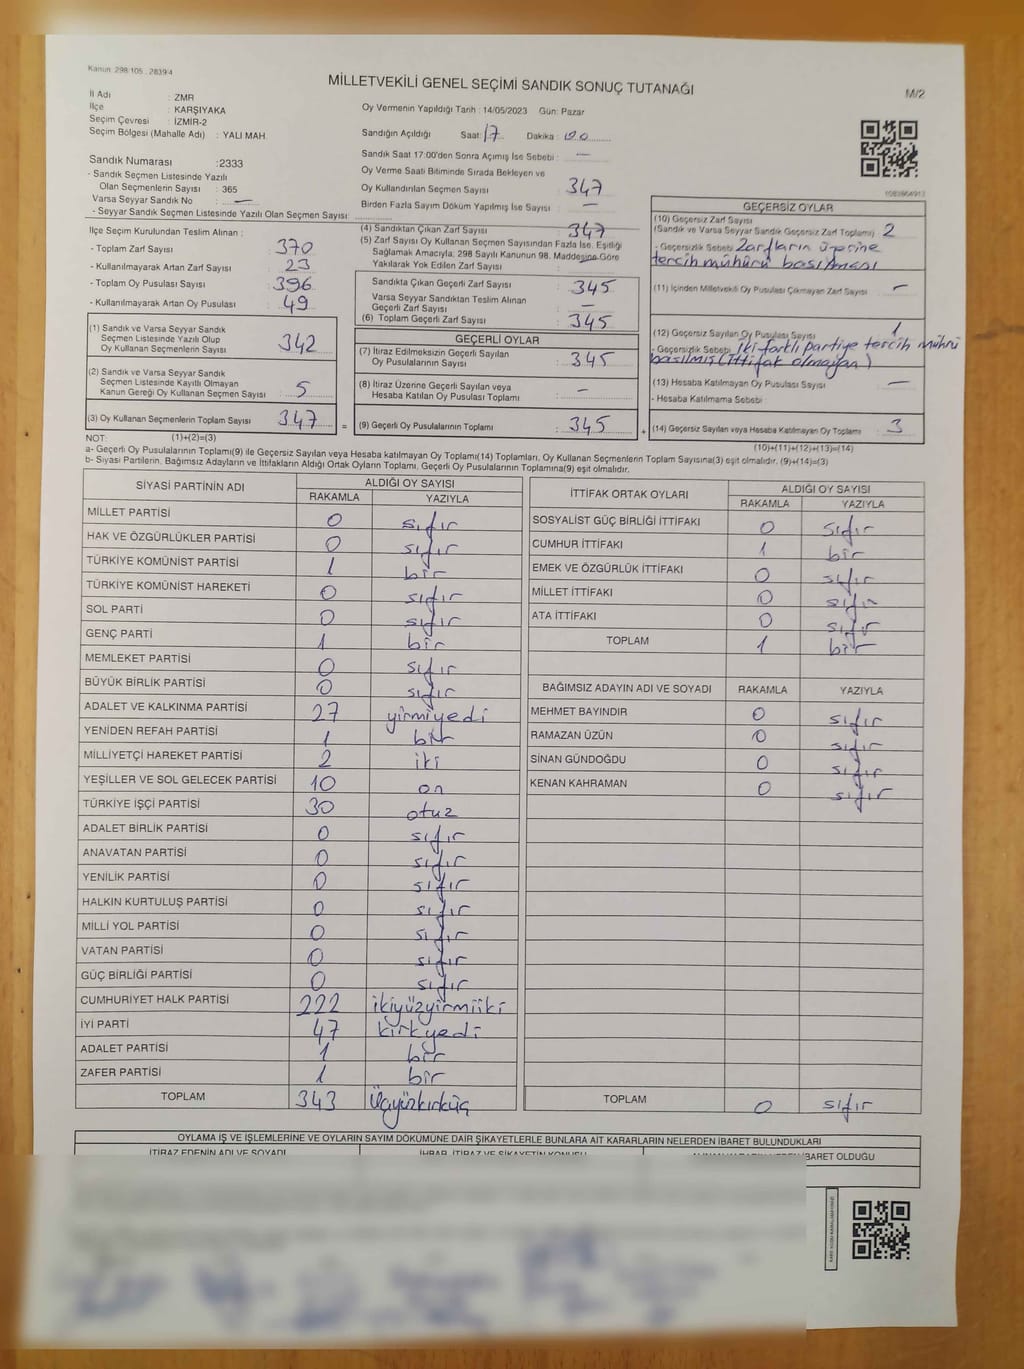 Kanun: 298/105 . 2839/4
MİLLETVEKİLİ GENEL SEÇİMİ SANDIK SONUÇ TUTANAĞI
M/2
İl Adı : ZMR
İlçe : KARŞIYAKA
Seçim Çevresi : İZMİR-2
Seçim Bölgesi (Mahalle Adı) : YALI MAH.
Oy Vermenin Yapıldığı Tarih : 14/05/2023 Gün: Pazar
Sandığın Açıldığı Saat: 17 Dakika: 00
Sandık Saat 17:00'den Sonra Açımış İse Sebebi : —
Oy Verme Saati Bitiminde Sırada Bekleyen ve
Oy Kullandırılan Seçmen Sayısı 347
Birden Fazla Sayım Döküm Yapılmış İse Sayısı : —
Sandık Numarası :2333
- Sandık Seçmen Listesinde Yazılı
Olan Seçmenlerin Sayısı : 365
Varsa Seyyar Sandık No : —
- Seyyar Sandık Seçmen Listesinde Yazılı Olan Seçmen Sayısı:
İlçe Seçim Kurulundan Teslim Alınan :
- Toplam Zarf Sayısı : 370
- Kullanılmayarak Artan Zarf Sayısı : 23
- Toplam Oy Pusulası Sayısı : 396
- Kullanılmayarak Artan Oy Pusulası : 49
(1) Sandık ve Varsa Seyyar Sandık
Seçmen Listesinde Yazılı Olup
Oy Kullanan Seçmenlerin Sayısı : 342
(2) Sandık ve Varsa Seyyar Sandık
Seçmen Listesinde Kayıtlı Olmayan
Kanun Gereği Oy Kullanan Seçmen Sayısı : 5
(3) Oy Kullanan Seçmenlerin Toplam Sayısı : 347
(4) Sandıktan Çıkan Zarf Sayısı : 347
(5) Zarf Sayısı Oy Kullanan Seçmen Sayısından Fazla İse, Eşitliği
Sağlamak Amacıyla, 298 Sayılı Kanunun 98. Maddesine Göre
Yakılarak Yok Edilen Zarf Sayısı :
Sandıkta Çıkan Geçerli Zarf Sayısı : 345
Varsa Seyyar Sandıktan Teslim Alınan
Geçerli Zarf Sayısı : —
(6) Toplam Geçerli Zarf Sayısı : 345
GEÇERLİ OYLAR
(7) İtiraz Edilmeksizin Geçerli Sayılan
Oy Pusulalarının Sayısı : 345
(8) İtiraz Üzerine Geçerli Sayılan veya
Hesaba Katılan Oy Pusulası Toplamı : —
= (9) Geçerli Oy Pusulalarının Toplamı : 345
GEÇERSİZ OYLAR
(10) Geçersiz Zarf Sayısı
(Sandık ve Varsa Seyyar Sandık Geçersiz Zarf Toplamı) 2
- Geçersizlik Sebebi : Zarfların üzerine
tercih mühürü basılması
(11) İçinden Milletvekili Oy Pusulası Çıkmayan Zarf Sayısı : —
(12) Geçersiz Sayılan Oy Pusulası Sayısı : 1
- Geçersizlik Sebebi : iki farklı partiye tercih mührü
basılmış (ittifak olmayan)
(13) Hesaba Katılmayan Oy Pusulası Sayısı : —
- Hesaba Katılmama Sebebi :
+ (14) Geçersiz Sayılan veya Hesaba Katılmayan Oy Toplamı : 3
NOT: (1)+(2)=(3)
(10)+(11)+(12)+(13)=(14)
a- Geçerli Oy Pusulaları Toplamı(9) ile Geçersiz Sayılan veya Hesaba katılmayan Oy Toplamı(14) Toplamları, Oy Kullanan Seçmenlerin Toplam Sayısına(3) eşit olmalıdır. (9)+(14)=(3)
b- Siyasi Partilerin, Bağımsız Adayların ve İttifakların Aldığı Ortak Oyların Toplamı, Geçerli Oy Pusulalarının Toplamına(9) eşit olmalıdır.
SİYASİ PARTİNİN ADI ALDIĞI OY SAYISI
RAKAMLA YAZIYLA
MİLLET PARTİSİ 0 sıfır
HAK VE ÖZGÜRLÜKLER PARTİSİ 0 sıfır
TÜRKİYE KOMÜNİST PARTİSİ 1 bir
TÜRKİYE KOMÜNİST HAREKETİ 0 sıfır
SOL PARTİ 0 sıfır
GENÇ PARTİ 1 bir
MEMLEKET PARTİSİ 0 sıfır
BÜYÜK BİRLİK PARTİSİ 0 sıfır
ADALET VE KALKINMA PARTİSİ 27 yirmiyedi
YENİDEN REFAH PARTİSİ 1 bir
MİLLİYETÇİ HAREKET PARTİSİ 2 iki
YEŞİLLER VE SOL GELECEK PARTİSİ 10 on
TÜRKİYE İŞÇİ PARTİSİ 30 otuz
ADALET BİRLİK PARTİSİ 0 sıfır
ANAVATAN PARTİSİ 0 sıfır
YENİLİK PARTİSİ 0 sıfır
HALKIN KURTULUŞ PARTİSİ 0 sıfır
MİLLİ YOL PARTİSİ 0 sıfır
VATAN PARTİSİ 0 sıfır
GÜÇ BİRLİĞİ PARTİSİ 0 sıfır
CUMHURİYET HALK PARTİSİ 222 ikiyüzyirmiiki
İYİ PARTİ 47 kırkyedi
ADALET PARTİSİ 1 bir
ZAFER PARTİSİ 1 bir
TOPLAM 343 Üçyüzkırküç
İTTİFAK ORTAK OYLARI ALDIĞI OY SAYISI
RAKAMLA YAZIYLA
SOSYALİST GÜÇ BİRLİĞİ İTTİFAKI 0 sıfır
CUMHUR İTTİFAKI 1 bir
EMEK VE ÖZGÜRLÜK İTTİFAKI 0 sıfır
MİLLET İTTİFAKI 0 sıfır
ATA İTTİFAKI 0 sıfır
TOPLAM 1 bir
BAĞIMSIZ ADAYIN ADI VE SOYADI RAKAMLA YAZIYLA
MEHMET BAYINDIR 0 sıfır
RAMAZAN ÜZÜN 0 sıfır
SİNAN GÜNDOĞDU 0 sıfır
KENAN KAHRAMAN 0 sıfır
TOPLAM 0 sıfır
OYLAMA İŞ VE İŞLEMLERİNE VE OYLARIN SAYIM DÖKÜMÜNE DAİR ŞİKAYETLERLE BUNLARA AİT KARARLARIN NELERDEN İBARET BULUNDUKLARI
İTİRAZ EDENİN ADI VE SOYADI İHBAR, İTİRAZ VE ŞİKAYETİN KONUSU İBARET OLDUĞU